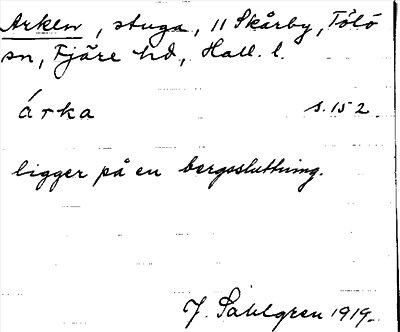 Arken, stuga, 11 Skårby, Tölö
sn, Fjäre hd, Hall. l.
árka s. 152.
ligger på en bergssluttning.
J. Sahlgren 1919.